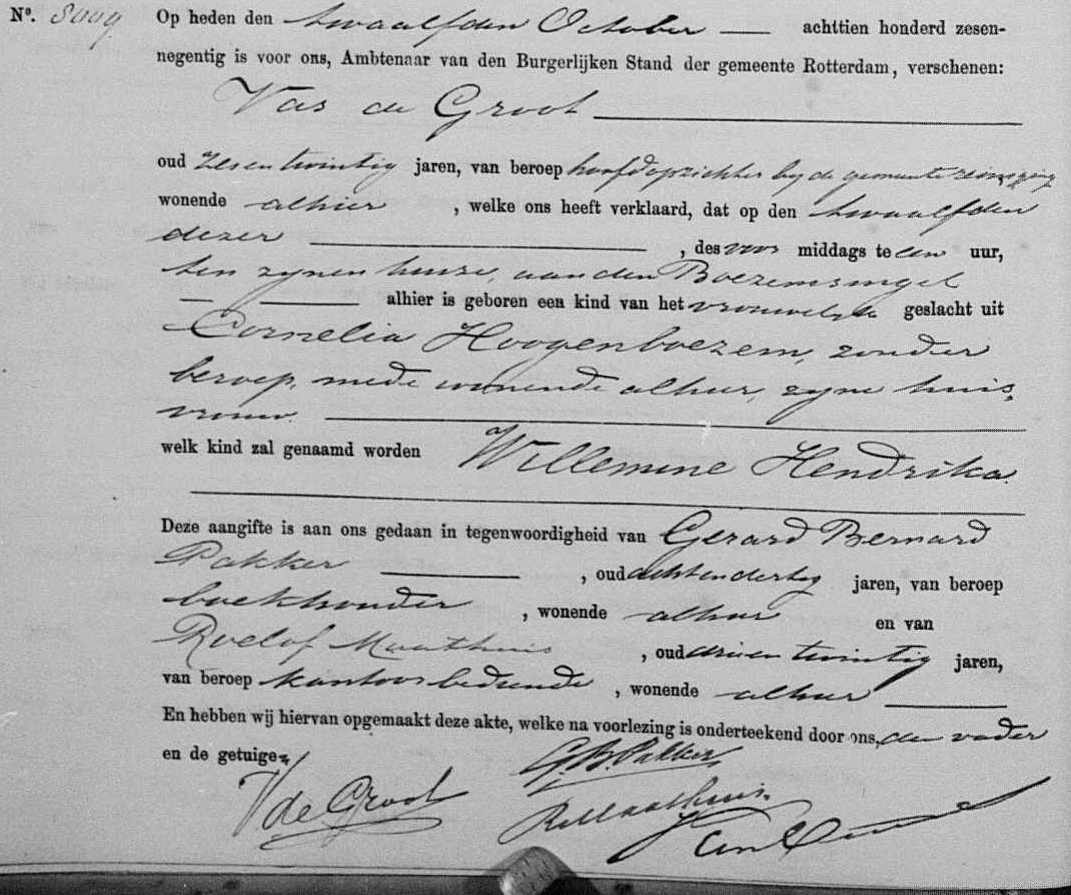 No. 8009 Op heden den twaalfden October achttien honderd zesen-
negentig is voor ons, Ambtenaar van den Burgerlijken Stand der gemeente Rotterdam, verschenen:
Vas de Groot
oud zesentwintig jaren, van beroep hoofdopzichter bij de gemeentereiniging
wonende alhier , welke ons heeft verklaard, dat op den twaalfden
dezer , des voor middags te een uur,
ten zijnen huize, aan den Boezemsingel
alhier is geboren een kind van het vrouwelijke geslacht uit
Cornelia Hoogenboezem, zonder
beroep, mede wonende alhier, zijne huis,
vrouw.
welk kind zal genaamd worden Willemine Hendrika
Deze aangifte is aan ons gedaan in tegenwoordigheid van Gerard Bernard
Pakker , oud achtendertig jaren, van beroep
boekhouder , wonende alhier en van
Roelof Maathuis , oud drieentwintig jaren,
van beroep kantoorbediende , wonende alhier
En hebben wij hiervan opgemaakt deze akte, welke na voorlezing is onderteekend door ons, den vader
en de getuigen
V de Groot G.B. Pakker
R Maathuis.